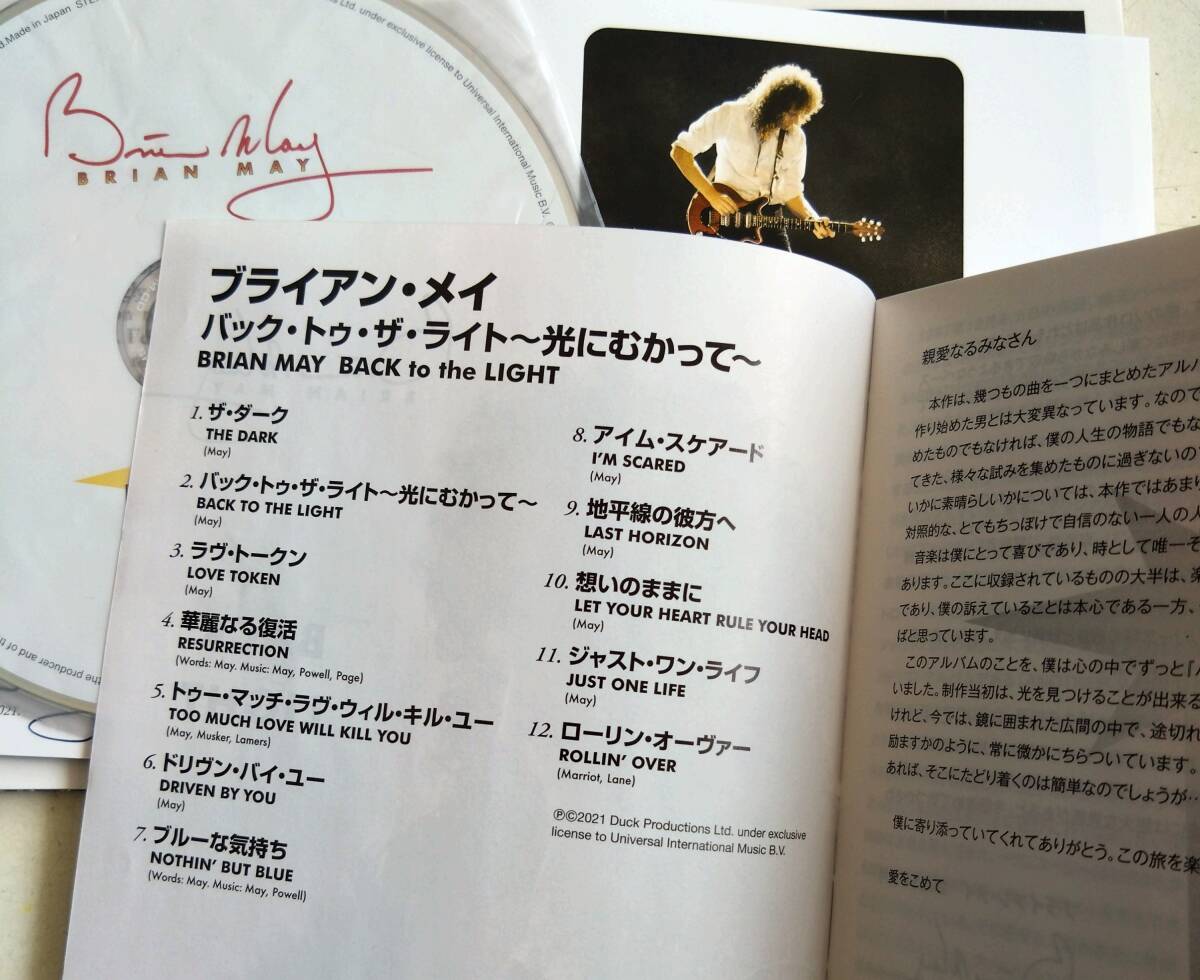 d.Made in Japan
Ltd. under exclusive license to Universal International Music B.V.
Brian May
BRIAN MAY
ブライアン・メイ
バック・トゥ・ザ・ライト〜光にむかって〜
BRIAN MAY BACK to the LIGHT
1. ザ・ダーク
THE DARK
(May)
2. バック・トゥ・ザ・ライト〜光にむかって〜
BACK TO THE LIGHT
(May)
3. ラヴ・トークン
LOVE TOKEN
(May)
4. 華麗なる復活
RESURRECTION
(Words: May. Music: May, Powell, Page)
5. トゥー・マッチ・ラヴ・ウィル・キル・ユー
TOO MUCH LOVE WILL KILL YOU
(May, Musker, Lamers)
6. ドリヴン・バイ・ユー
DRIVEN BY YOU
(May)
7. ブルーな気持ち
NOTHIN' BUT BLUE
(Words: May. Music: May, Powell)
8. アイム・スケアード
I'M SCARED
(May)
9. 地平線の彼方へ
LAST HORIZON
(May)
10. 想いのままに
LET YOUR HEART RULE YOUR HEAD
(May)
11. ジャスト・ワン・ライフ
JUST ONE LIFE
(May)
12. ローリン・オーヴァー
ROLLIN' OVER
(Marriot, Lane)
Ⓟ©2021 Duck Productions Ltd. under exclusive
license to Universal International Music B.V.
親愛なるみなさん
本作は、幾つもの曲を一つにまとめたアルバ
作り始めた男とは大変異なっています。なので
めたものでもなければ、僕の人生の物語でもな
てきた、様々な試みを集めたものに過ぎないので
いかに素晴らしいかについては、本作ではあまり
対照的な、とてもちっぽけで自信のない一人の人
音楽は僕にとって喜びであり、時として唯一そ
あります。ここに収録されているものの大半は、楽
であり、僕の訴えていることは本心である一方、
ばと思っています。
このアルバムのことを、僕は心の中でずっと『
いました。制作当初は、光を見つけることが出来る
けれど、今では、鏡に囲まれた広間の中で、途切れ
励ますかのように、常に微かにちらついています。
あれば、そこにたどり着くのは簡単なのでしょうが…
僕に寄り添っていてくれてありがとう。この旅を楽
愛をこめて
the producer and of